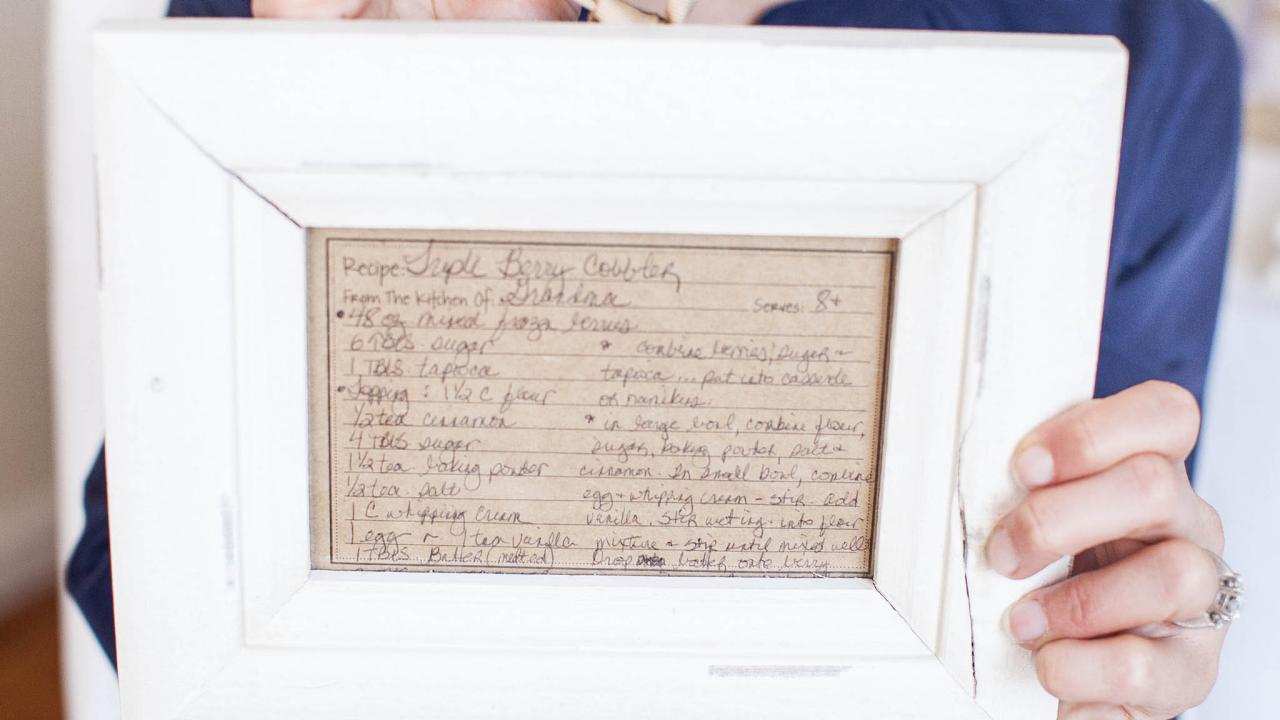 Recipe: Triple Berry Cobbler
From The Kitchen Of: Grandma Serves: 8+
• 48 oz mixed frozen berries
6 TBLS sugar * combine berries, sugar +
1 TBLS tapioca tapioca ... put into casserole
• Topping: 1 1/2 C flour or
1/2 tea cinnamon * in large bowl, combine flour,
4 TBLS sugar sugar, baking powder, salt +
1 1/2 tea baking powder cinnamon. In small bowl, combine
1/2 tea. salt egg + whipping cream - stir. add
1 C whipping cream vanilla. Stir into flour
1 egg ~ 1 tea vanilla mixture + stir until mixed well
1 TBLS Butter (melted) Drop batter onto berry